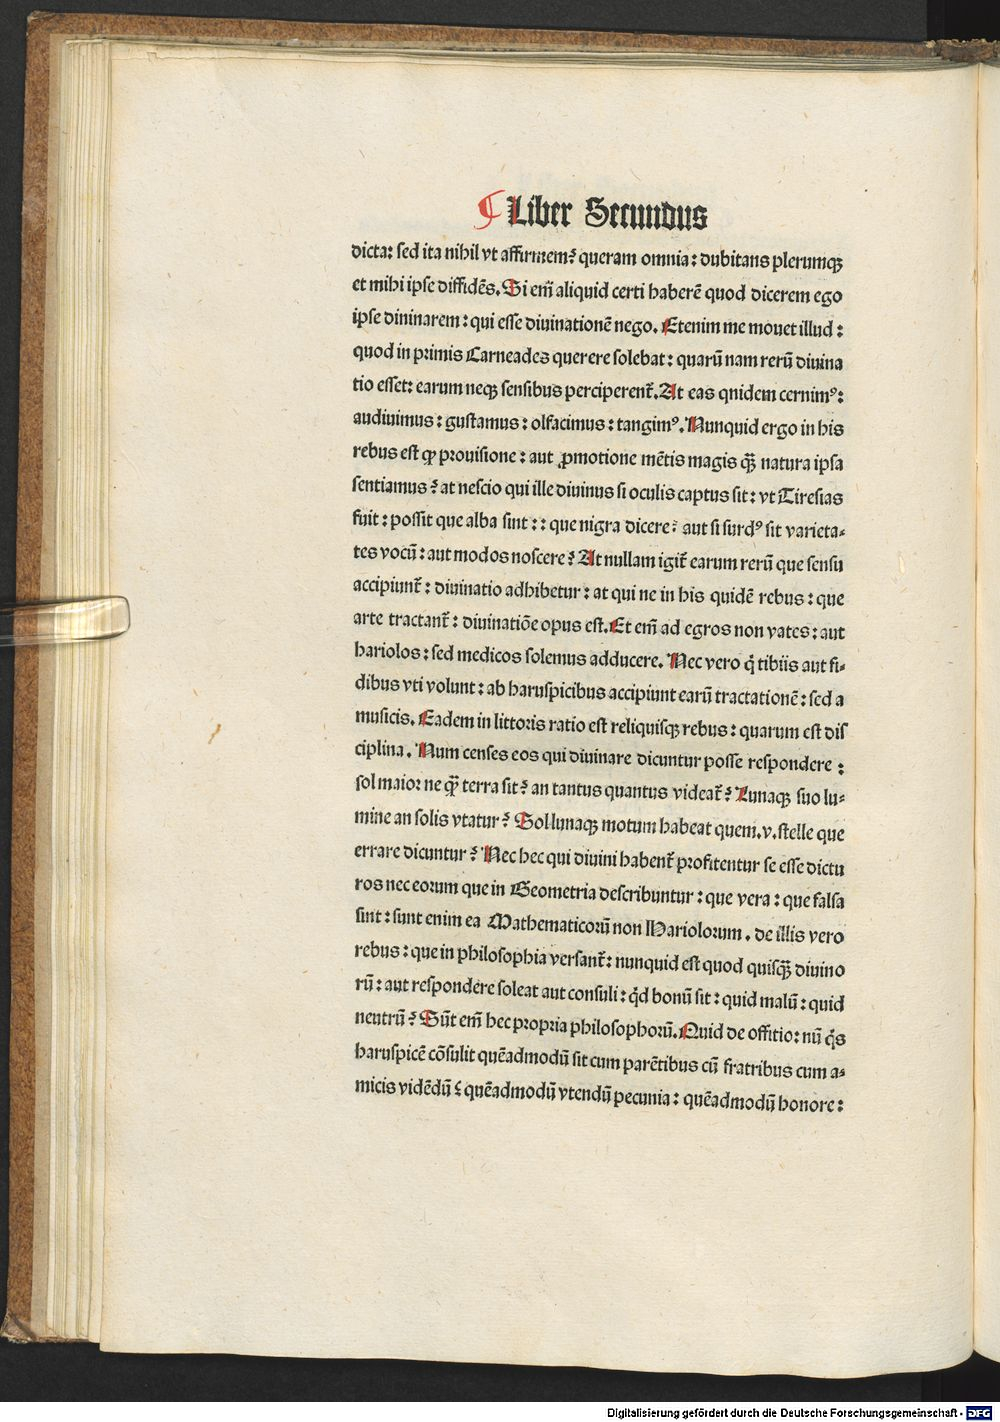 ¶ Liber Secundus
dicta: sed ita nihil vt affirmemꝰ queram omnia: dubitans plerumqꝫ
et mihi ipse diffidēs. Si em̄ aliquid certi haberē quod dicerem ego
ipse dininarem: qui esse diuinationē nego. Etenim me mouet illud:
quod in primis Carneades querere solebat: quarū nam rerū diuina
tio esset: earum neqꝫ sensibus perciperent᷑. At eas qnidem cernimꝰ:
audiuimus: gustamus: olfacimus: tangimꝰ. Nunquid ergo in his
rebus est qꝙ prouisione: aut ꝓmotione mētis magis qꝫ̄ natura ipsa
sentiamus? at nescio qui ille diuinus si oculis captus sit: vt Tiresias
fuit: possit que alba sint:: que nigra dicere? aut si surdꝰ sit varieta-
tes vocū: aut modos noscere? At nullam igit᷑ earum rerū que sensu
accipiunt᷑: diuinatio adhibetur: at qui ne in his quidē rebus: que
arte tractant᷑: diuinatiōe opus est. Et em̄ ad egros non vates: aut
hariolos: sed medicos solemus adducere. Nec vero q̇ tibiis aut fi-
dibus vti volunt: ab haruspicibus accipiunt earū tractationē: sed a
musicis. Eadem in littoris ratio est reliquisqꝫ rebus: quarum est dis
ciplina. Num censes eos qui diuinare dicuntur posse respondere:
sol maior ne qꝫ̄ terra sit? an tantus quantus videat᷑? Lunaqꝫ suo lu-
mine an solis vtatur? Sol lunaqꝫ motum habeat quem .v. stelle que
errare dicuntur? Nec hec qui diuini habent᷑ profitentur se esse dictu
ros nec eorum que in Geometria describuntur: que vera: que falsa
sint: sunt enim ea Mathematicorū non Hariolorum. de illis vero
rebus: que in philosophia versant᷑: nunquid est quod quisqꝫ̄ diuino
rū: aut respondere soleat aut consuli: qd̓ bonū sit: quid malū: quid
neutrū? Sūt em̄ hec propria philosophorū. Quid de offitio: nū q̇s
haruspicē cōsulit quēadmodū sit cum parētibus cū fratribus cum a-
micis vidēdū? quēadmodū vtendū pecunia: quēadmodū honore:
Digitalisierung gefördert durch die Deutsche Forschungsgemeinschaft - DFG